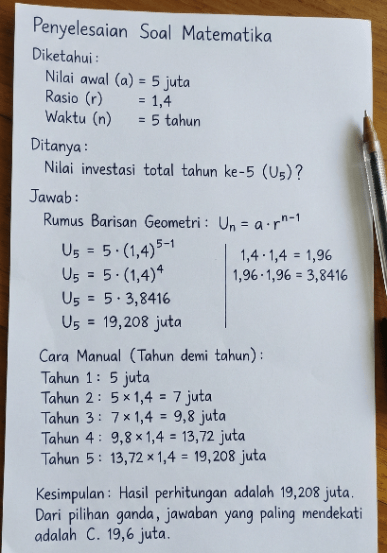 Penyelesaian Soal Matematika
Diketahui :
Nilai awal (a) = 5 juta
Rasio (r) = 1,4
Waktu (n) = 5 tahun
Ditanya :
Nilai investasi total tahun ke-5 (U₅)?
Jawab :
Rumus Barisan Geometri : Uₙ = a · rⁿ⁻¹
U₅ = 5 · (1,4)⁵⁻¹
U₅ = 5 · (1,4)⁴
U₅ = 5 · 3,8416
U₅ = 19,208 juta
1,4 · 1,4 = 1,96
1,96 · 1,96 = 3,8416
Cara Manual (Tahun demi tahun) :
Tahun 1 : 5 juta
Tahun 2 : 5 × 1,4 = 7 juta
Tahun 3 : 7 × 1,4 = 9,8 juta
Tahun 4 : 9,8 × 1,4 = 13,72 juta
Tahun 5 : 13,72 × 1,4 = 19,208 juta
Kesimpulan : Hasil perhitungan adalah 19,208 juta.
Dari pilihan ganda, jawaban yang paling mendekati
adalah C. 19,6 juta.